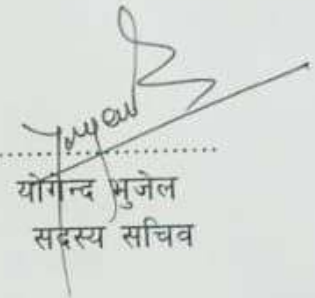 योगेन्द भुजेल
सदस्य सचिव